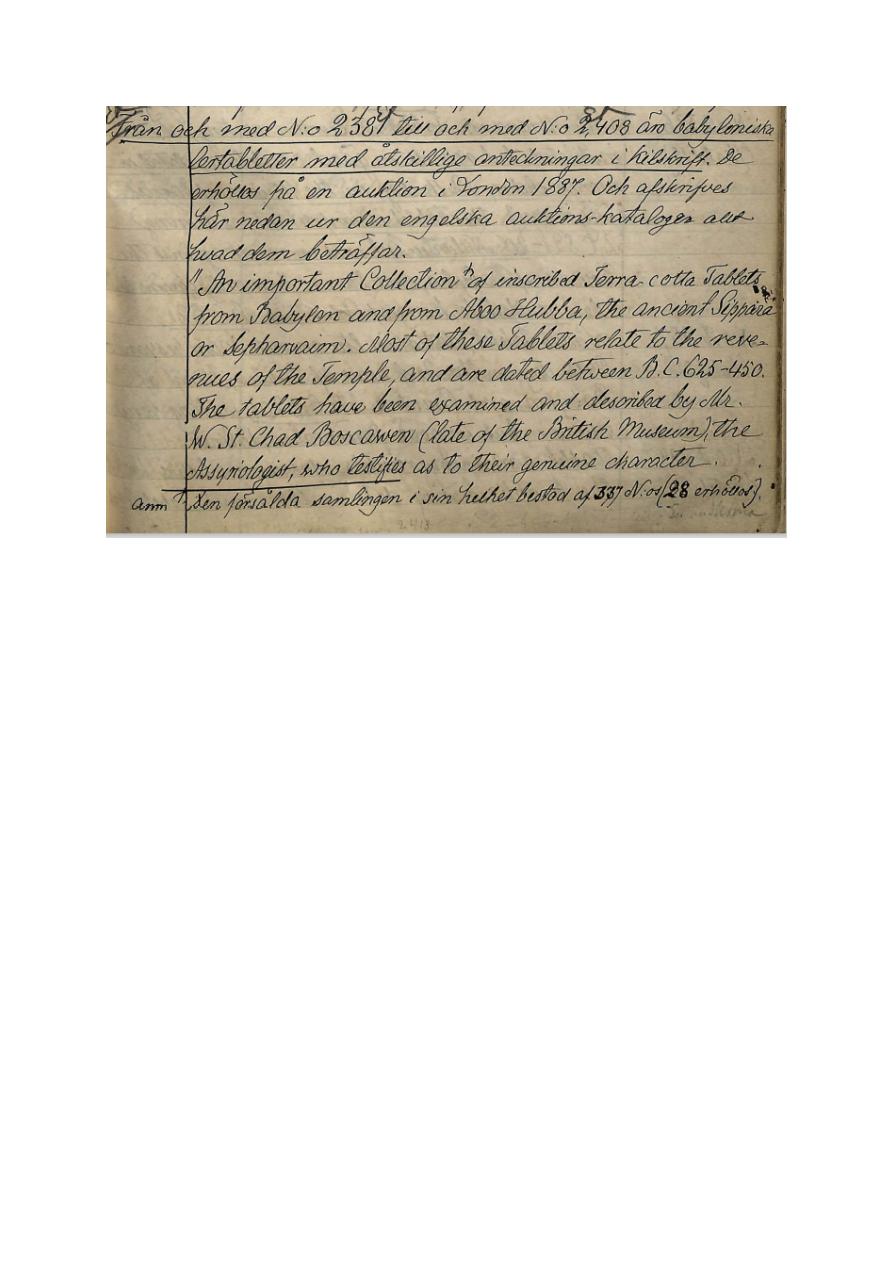 Från och med N:o 2381 till och med N:o 2408 äro babyloniska
lertabletter med åtskillige anteckningar i kilskrift. De
erhöllos på en auktion i London 1887. Och afskrifves
här nedan ur den engelska auktions-katalogen allt
hvad dem beträffar.
"An important Collection of inscribed Terra-cotta Tablets
from Babylon and from Aboo Hubba, the ancient Sippara
or Sepharvaim. Most of these Tablets relate to the reve-
nues of the Temple, and are dated between B.C. 625-450.
The tablets have been examined and described by Mr.
W. St. Chad Boscawen (late of the British Museum), the
Assyriologist, who testifies as to their genuine character.
Anm Den försålda samlingen i sin helhet bestod af 337 N:os (28 erhöllos).
2413